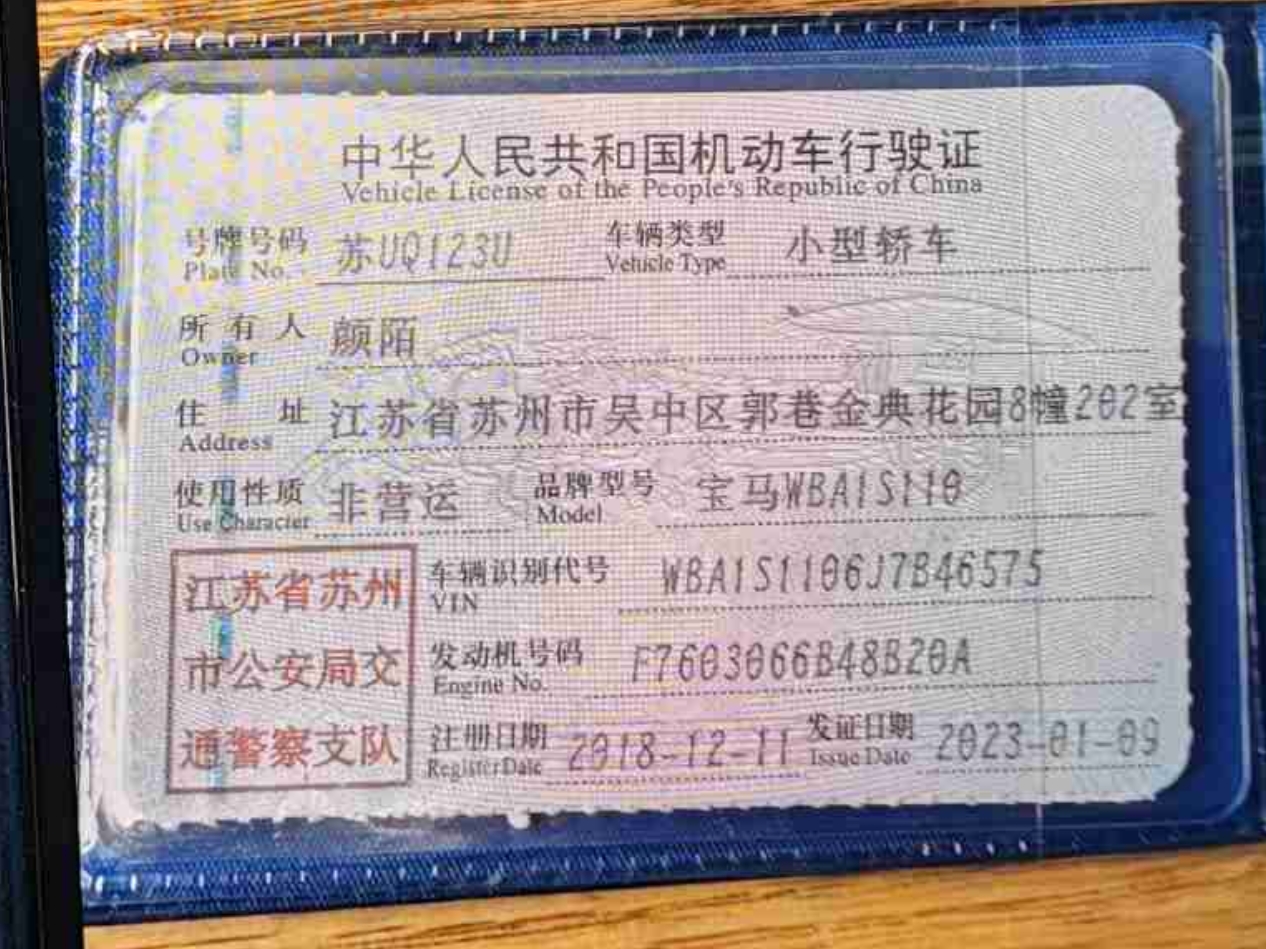 中华人民共和国机动车行驶证
Vehicle License of the People's Republic of China
号牌号码 苏UQ123U 车辆类型 小型轿车
Plate No. Vehicle Type
所有人 颜陌
Owner
住址 江苏省苏州市吴中区郭巷金典花园8幢202室
Address
使用性质 非营运 品牌型号 宝马WBA1S110
Use Character Model
江苏省苏州 车辆识别代号 WBA1S1106J7B46575
VIN
市公安局交 发动机号码 F7603066B48B20A
Engine No.
通警察支队 注册日期 2018-12-11 发证日期 2023-01-09
Register Date Issue Date